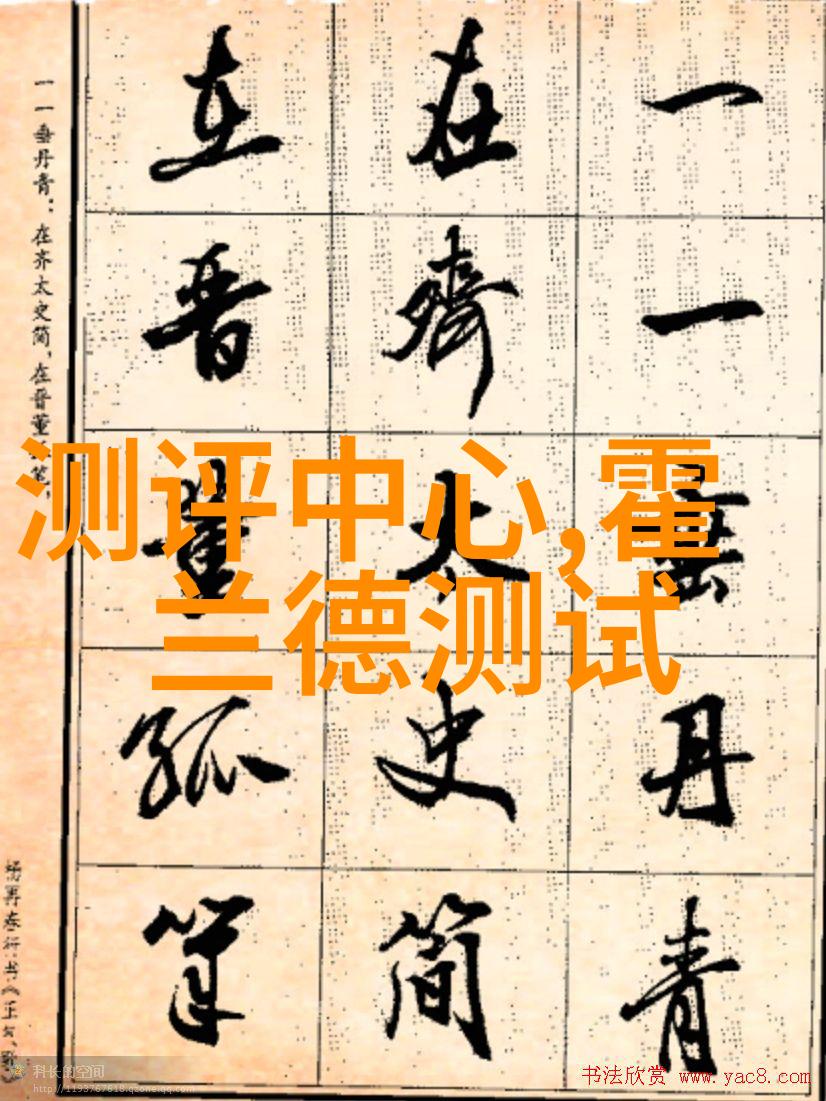 一一垂丹青
在齐太史简
在晋董狐笔
一一垂丹青：在齐太史简，在晋董狐笔，
测评中心,霍
兰德测试
科长的空间
http://1193767618.qzone.qq.com
书法欣赏 www.yac8.com